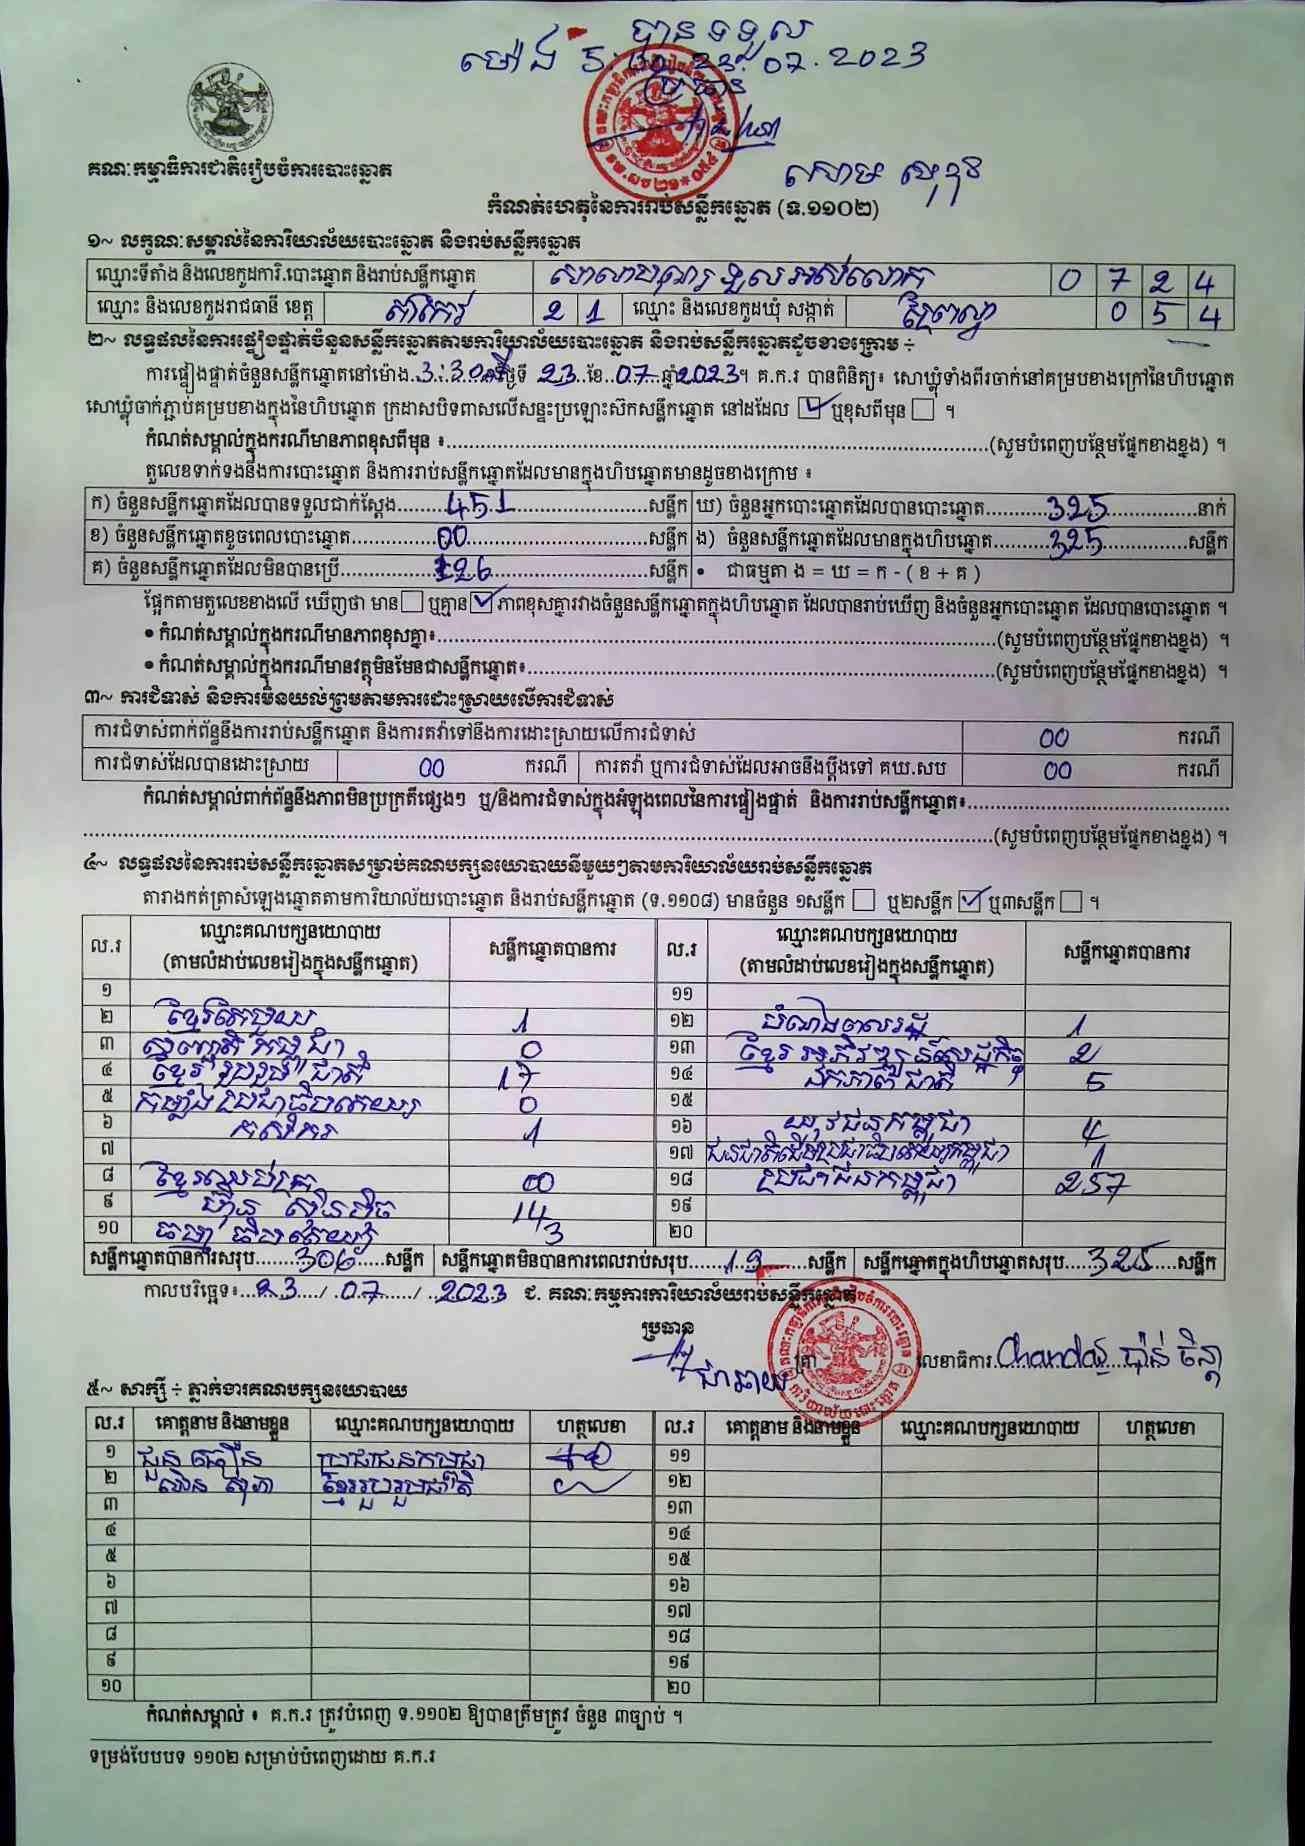 បានទទួល
ម៉ោង 5:00 23.07.2023
ប្រធាន
គណៈកម្មាធិការជាតិរៀបចំការបោះឆ្នោត
កំណត់ហេតុនៃការរាប់សន្លឹកឆ្នោត (ទ.១១០២)
១~ លក្ខណៈសម្គាល់នៃការិយាល័យបោះឆ្នោត និងរាប់សន្លឹកឆ្នោត
ឈ្មោះទីតាំង និងលេខកូដការិ.បោះឆ្នោត និងរាប់សន្លឹកឆ្នោត 0 7 2 4
ឈ្មោះ និងលេខកូដរាជធានី ខេត្ត តាកែវ 2 1 ឈ្មោះ និងលេខកូដឃុំ សង្កាត់ 0 5 4
២~ លទ្ធផលនៃការផ្ទៀងផ្ទាត់ចំនួនសន្លឹកឆ្នោតតាមការិយាល័យបោះឆ្នោត និងរាប់សន្លឹកឆ្នោតដូចខាងក្រោម ÷
ការផ្ទៀងផ្ទាត់ចំនួនសន្លឹកឆ្នោតនៅម៉ោង 3:30 ថ្ងៃទី 23 ខែ 07 ឆ្នាំ 2023។ គ.ក.រ បានពិនិត្យ៖ សោឃ្លុំទាំងពីរចាក់នៅគម្របខាងក្រៅនៃហិបឆ្នោត
សោឃ្លុំចាក់ភ្ជាប់គម្របខាងក្នុងនៃហិបឆ្នោត ក្រដាសបិទពាសលើសន្ទះប្រឡោះស៊កសន្លឹកឆ្នោត នៅដដែល ☑ ឬខុសពីមុន ☐ ។
កំណត់សម្គាល់ក្នុងករណីមានភាពខុសពីមុន ៖ (សូមបំពេញបន្ថែមផ្នែកខាងខ្នង) ។
តួលេខទាក់ទងនឹងការបោះឆ្នោត និងការរាប់សន្លឹកឆ្នោតដែលមានក្នុងហិបឆ្នោតមានដូចខាងក្រោម ៖
ក) ចំនួនសន្លឹកឆ្នោតដែលបានទទួលជាក់ស្តែង 451 សន្លឹក ឃ) ចំនួនអ្នកបោះឆ្នោតដែលបានបោះឆ្នោត 325 នាក់
ខ) ចំនួនសន្លឹកឆ្នោតខូចពេលបោះឆ្នោត 00 សន្លឹក ង) ចំនួនសន្លឹកឆ្នោតដែលមានក្នុងហិបឆ្នោត 325 សន្លឹក
គ) ចំនួនសន្លឹកឆ្នោតដែលមិនបានប្រើ 126 សន្លឹក • ជាធម្មតា ង = ឃ = ក - ( ខ + គ )
ផ្អែកតាមតួលេខខាងលើ ឃើញថា មាន ☐ ឬគ្មាន ☑ ភាពខុសគ្នារវាងចំនួនសន្លឹកឆ្នោតក្នុងហិបឆ្នោត ដែលបានរាប់ឃើញ និងចំនួនអ្នកបោះឆ្នោត ដែលបានបោះឆ្នោត ។
• កំណត់សម្គាល់ក្នុងករណីមានភាពខុសគ្នា៖ (សូមបំពេញបន្ថែមផ្នែកខាងខ្នង) ។
• កំណត់សម្គាល់ក្នុងករណីមានវត្ថុមិនមែនជាសន្លឹកឆ្នោត៖ (សូមបំពេញបន្ថែមផ្នែកខាងខ្នង) ។
៣~ ការជំទាស់ និងការមិនយល់ព្រមតាមការដោះស្រាយលើការជំទាស់
ការជំទាស់ពាក់ព័ន្ធនឹងការរាប់សន្លឹកឆ្នោត និងការតវ៉ាទៅនឹងការដោះស្រាយលើការជំទាស់ 00 ករណី
ការជំទាស់ដែលបានដោះស្រាយ 00 ករណី ការតវ៉ា ឬការជំទាស់ដែលអាចនឹងប្តឹងទៅ គឃ.សប 00 ករណី
កំណត់សម្គាល់ពាក់ព័ន្ធនឹងភាពមិនប្រក្រតីផ្សេងៗ ឬ/និងការជំទាស់ក្នុងអំឡុងពេលនៃការផ្ទៀងផ្ទាត់ និងការរាប់សន្លឹកឆ្នោត៖
(សូមបំពេញបន្ថែមផ្នែកខាងខ្នង) ។
៤~ លទ្ធផលនៃការរាប់សន្លឹកឆ្នោតសម្រាប់គណបក្សនយោបាយនីមួយៗតាមការិយាល័យរាប់សន្លឹកឆ្នោត
តារាងកត់ត្រាសំឡេងឆ្នោតតាមការិយាល័យបោះឆ្នោត និងរាប់សន្លឹកឆ្នោត (ទ.១១០៨) មានចំនួន ១សន្លឹក ☐ ឬ២សន្លឹក ☑ ឬ៣សន្លឹក ☐ ។
ល.រ ឈ្មោះគណបក្សនយោបាយ (តាមលំដាប់លេខរៀងក្នុងសន្លឹកឆ្នោត) សន្លឹកឆ្នោតបានការ ល.រ ឈ្មោះគណបក្សនយោបាយ (តាមលំដាប់លេខរៀងក្នុងសន្លឹកឆ្នោត) សន្លឹកឆ្នោតបានការ
១ ១១
២ ខ្មែរតែមួយ 1 ១២ 1
៣ សញ្ជាតិកម្ពុជា 0 ១៣ ខ្មែរអភិវឌ្ឍន៍សេដ្ឋកិច្ច 2
៤ ខ្មែររួបរួមជាតិ 17 ១៤ ឯកភាពជាតិ 5
៥ កម្លាំងប្រជាធិបតេយ្យ 0 ១៥
៦ កសិករ 1 ១៦ យុវជនកម្ពុជា 4
៧ ១៧ ជនជាតិដើមប្រជាធិបតេយ្យកម្ពុជា 1
៨ ខ្មែរអភិរក្ស 00 ១៨ ប្រជាជនកម្ពុជា 257
៩ ហ៊្វុនស៊ិនប៉ិច 14 ១៩
១០ ធម្មាធិបតេយ្យ 3 ២០
សន្លឹកឆ្នោតបានការសរុប 306 សន្លឹក សន្លឹកឆ្នោតមិនបានការពេលរាប់សរុប 19 សន្លឹក សន្លឹកឆ្នោតក្នុងហិបឆ្នោតសរុប 325 សន្លឹក
កាលបរិច្ឆេទ៖ 23 / 07 / 2023 ជ. គណៈកម្មការការិយាល័យរាប់សន្លឹកឆ្នោត
ប្រធាន
ត្រា លេខាធិការ
៥~ សាក្សី ÷ ភ្នាក់ងារគណបក្សនយោបាយ
ល.រ គោត្តនាម និងនាមខ្លួន ឈ្មោះគណបក្សនយោបាយ ហត្ថលេខា ល.រ គោត្តនាម និងនាមខ្លួន ឈ្មោះគណបក្សនយោបាយ ហត្ថលេខា
១ ប្រជាជនកម្ពុជា ១១
២ ខ្មែររួបរួមជាតិ ១២
៣ ១៣
៤ ១៤
៥ ១៥
៦ ១៦
៧ ១៧
៨ ១៨
៩ ១៩
១០ ២០
កំណត់សម្គាល់ ៖ គ.ក.រ ត្រូវបំពេញ ទ.១១០២ ឱ្យបានត្រឹមត្រូវ ចំនួន ៣ច្បាប់ ។
ទម្រង់បែបបទ ១១០២ សម្រាប់បំពេញដោយ គ.ក.រ